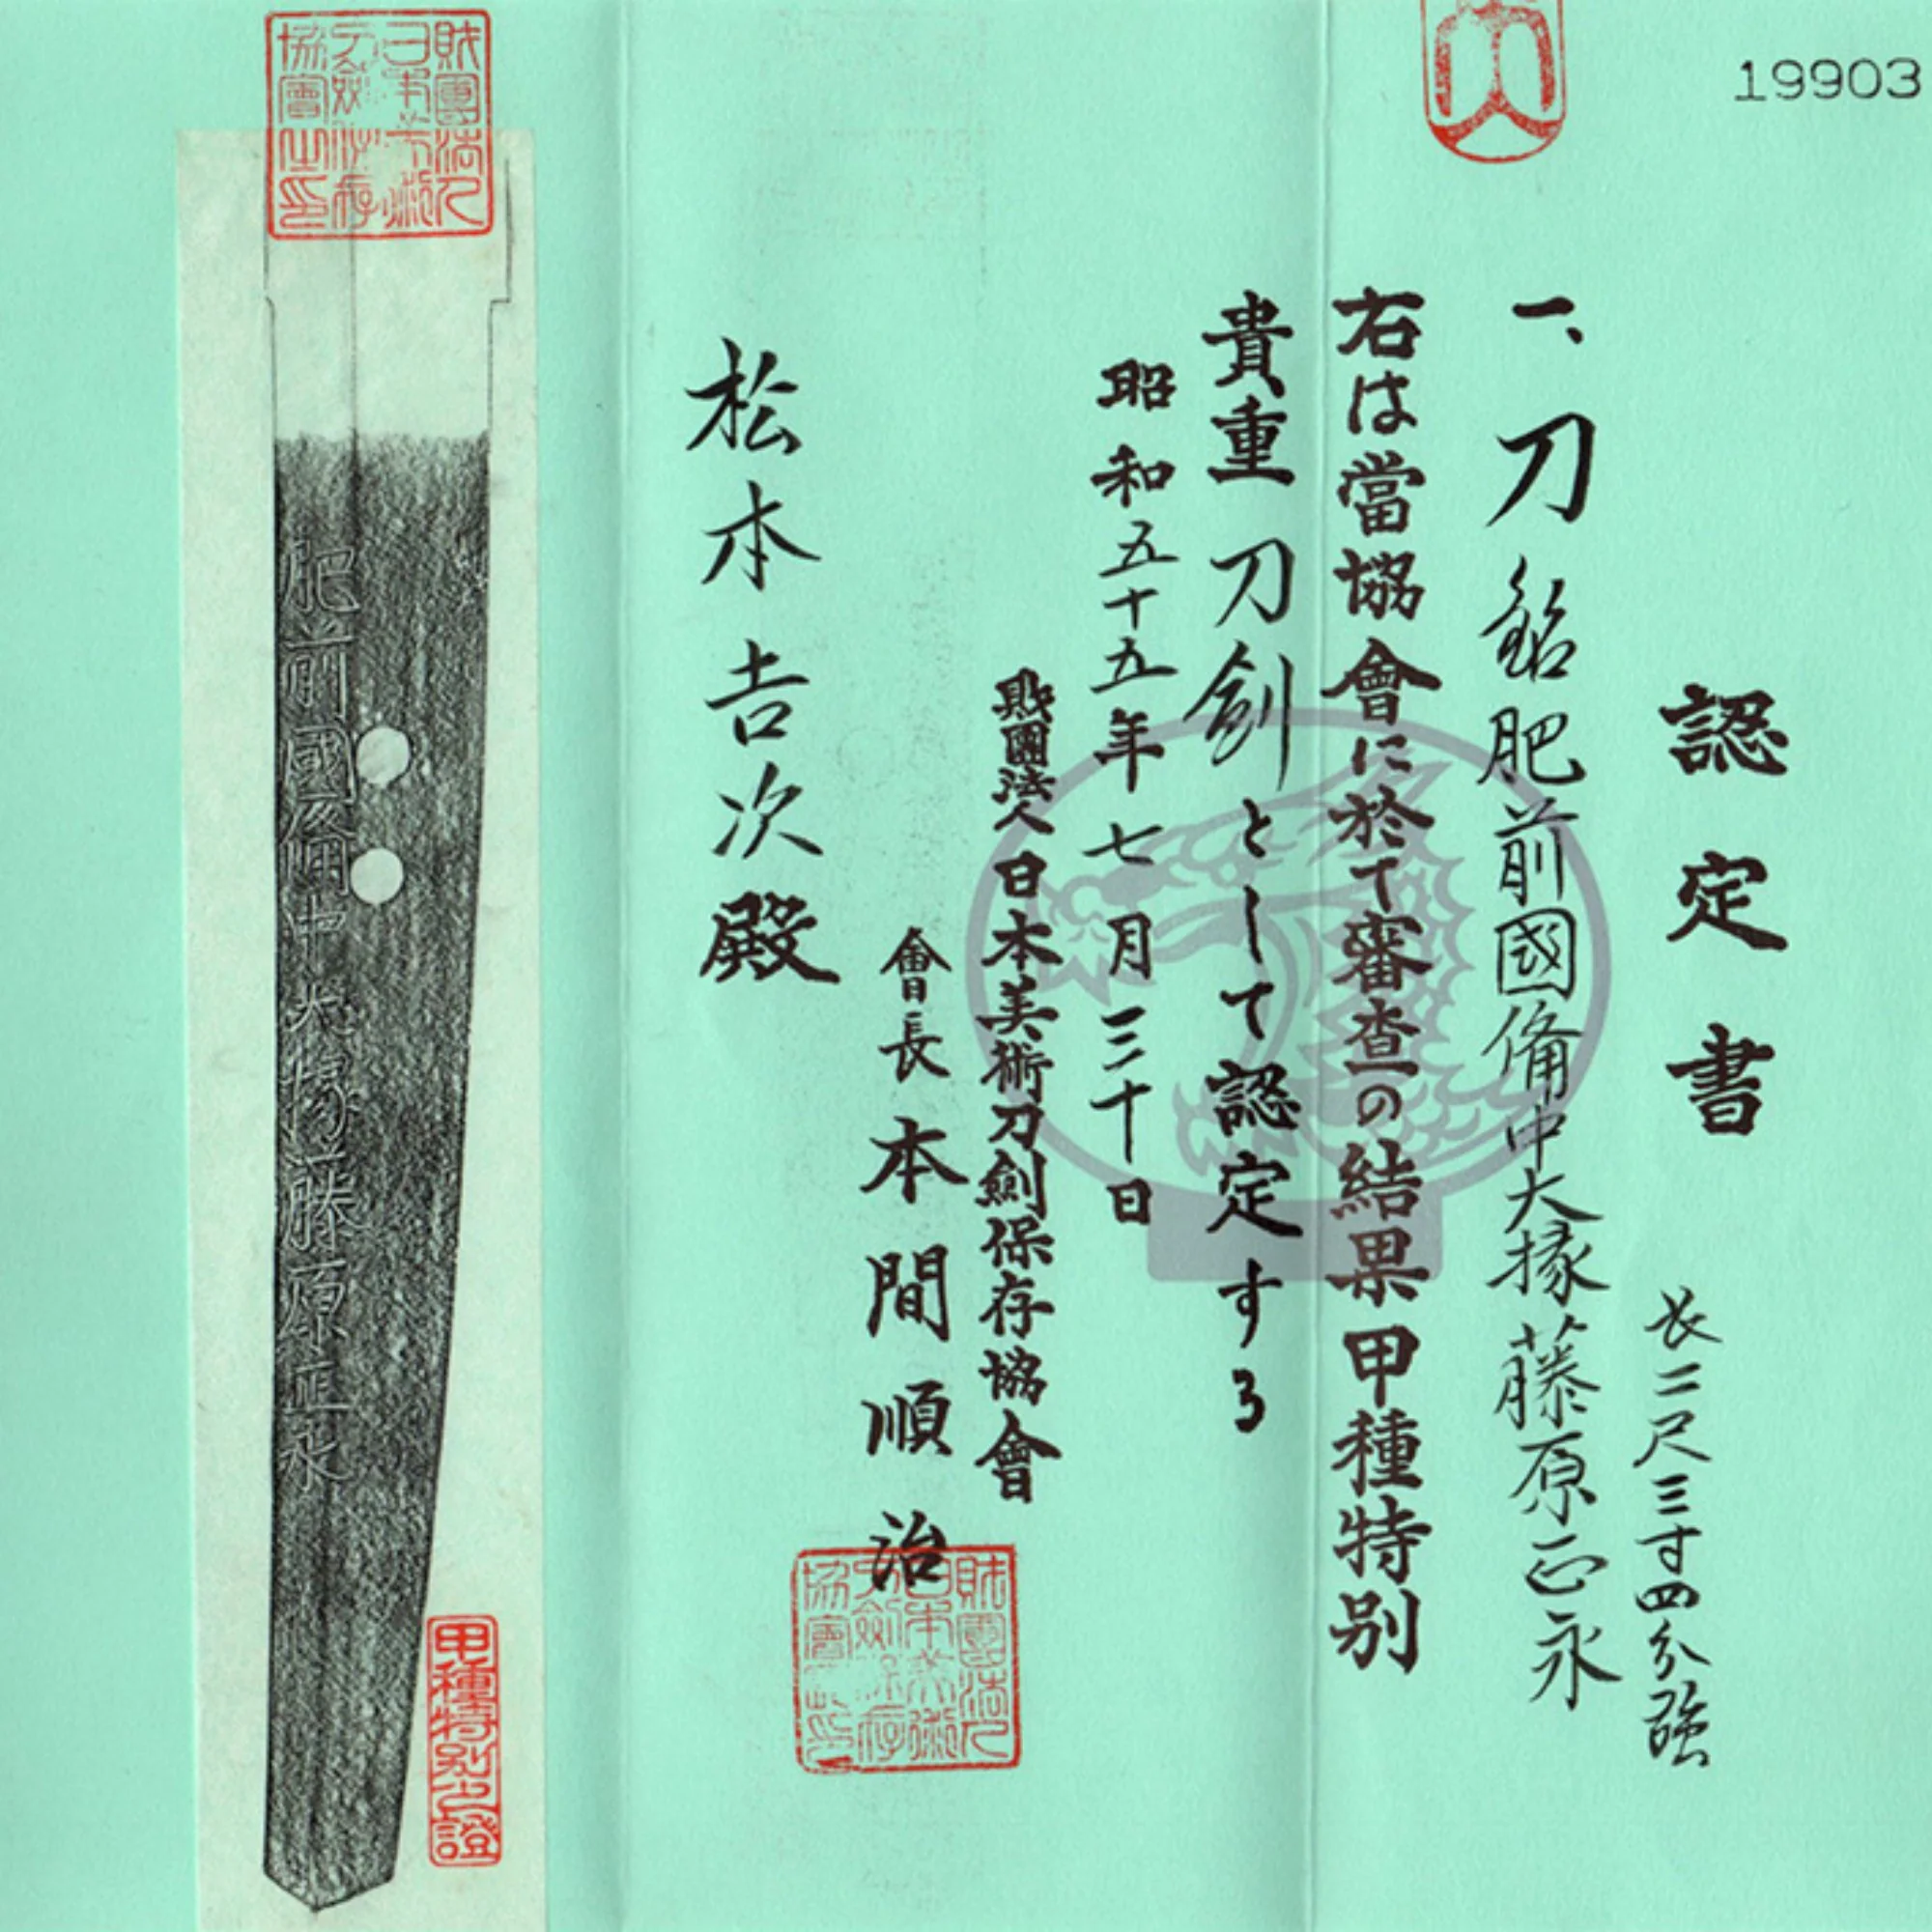 19903
認定書
一、刀 銘 肥前國備中大掾藤原正永
長二尺三寸四分強
右は當協會に於て審査の結果甲種特別
貴重刀剣として認定する
昭和五十五年七月三十日
財團法人日本美術刀劍保存協會
會長 本間順治
松本吉次殿
財團法人日本美術刀劍保存協會之印
財團法人日本美術刀劍保存協會之印
肥前國備中大掾藤原正永
甲種特別之證